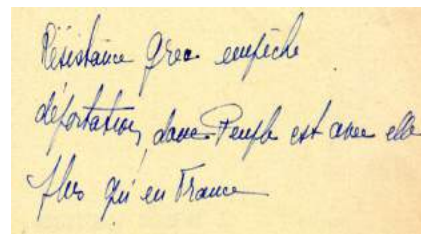 Résistance grec empêche
déportation, donc Peuple est avec elle
plus qu'en France